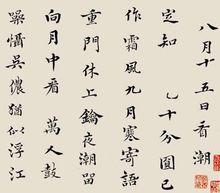 八月十五日看潮
定知十分圓已
作霜風九月寒寄語
重門休上鑰夜潮留
向月中看萬人鼓
噪懾吳儂猶似浮江